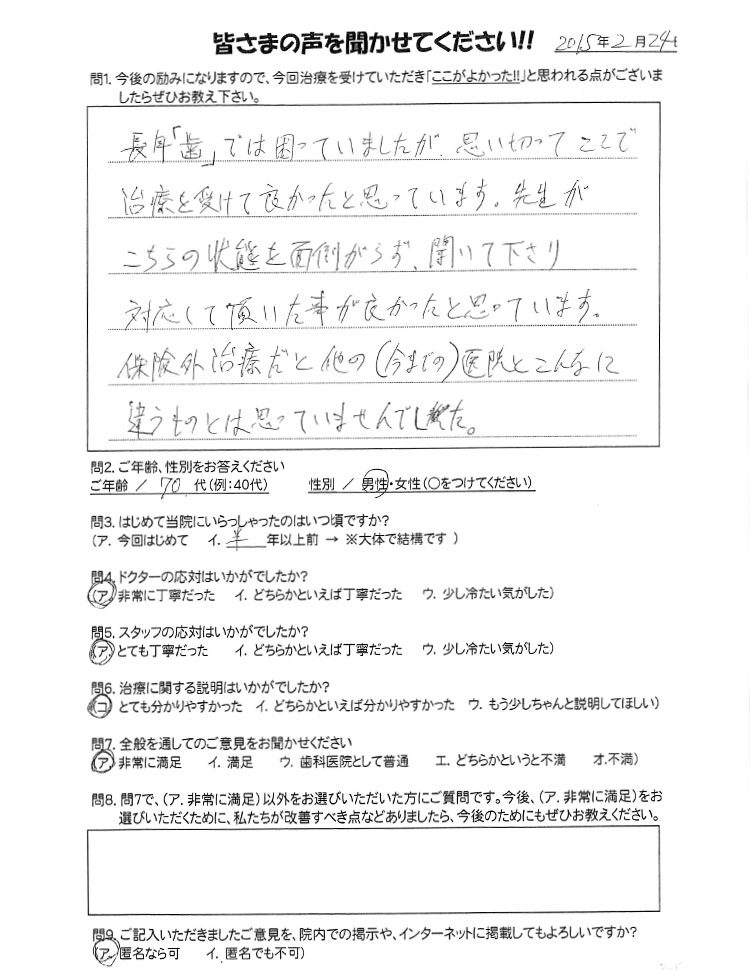 皆さまの声を聞かせてください!! 2015年2月24日
問1. 今後の励みになりますので、今回治療を受けていただき「ここがよかった!!」と思われる点がございま
したらぜひお教え下さい。
長年「歯」では困っていましたが、思い切ってここで
治療を受けて良かったと思っています。先生が
こちらの状態を面倒がらず、聞いて下さり
対応して頂いた事が良かったと思っています。
保険外治療だと他の(今までの)医院とこんなに
違うものとは思っていませんでした。
問2. ご年齢、性別をお答えください
ご年齢 / 70 代(例:40代) 性別 / 男性・女性(○をつけてください)
問3. はじめて当院にいらっしゃったのはいつ頃ですか?
(ア. 今回はじめて イ. 半 年以上前 → ※大体で結構です )
問4. ドクターの応対はいかがでしたか?
(ア. 非常に丁寧だった イ. どちらかといえば丁寧だった ウ. 少し冷たい気がした)
問5. スタッフの応対はいかがでしたか?
(ア. とても丁寧だった イ. どちらかといえば丁寧だった ウ. 少し冷たい気がした)
問6. 治療に関する説明はいかがでしたか?
(コ とても分かりやすかった イ. どちらかといえば分かりやすかった ウ. もう少しちゃんと説明してほしい)
問7. 全般を通してのご意見をお聞かせください
(ア. 非常に満足 イ. 満足 ウ. 歯科医院として普通 エ. どちらかというと不満 オ.不満)
問8. 問7で、(ア. 非常に満足) 以外をお選びいただいた方にご質問です。今後、(ア. 非常に満足)をお
選びいただくために、私たちが改善すべき点などありましたら、今後のためにもぜひお教えください。
問9. ご記入いただきましたご意見を、院内での掲示や、インターネットに掲載してもよろしいですか?
(ア. 匿名なら可 イ. 匿名でも不可)